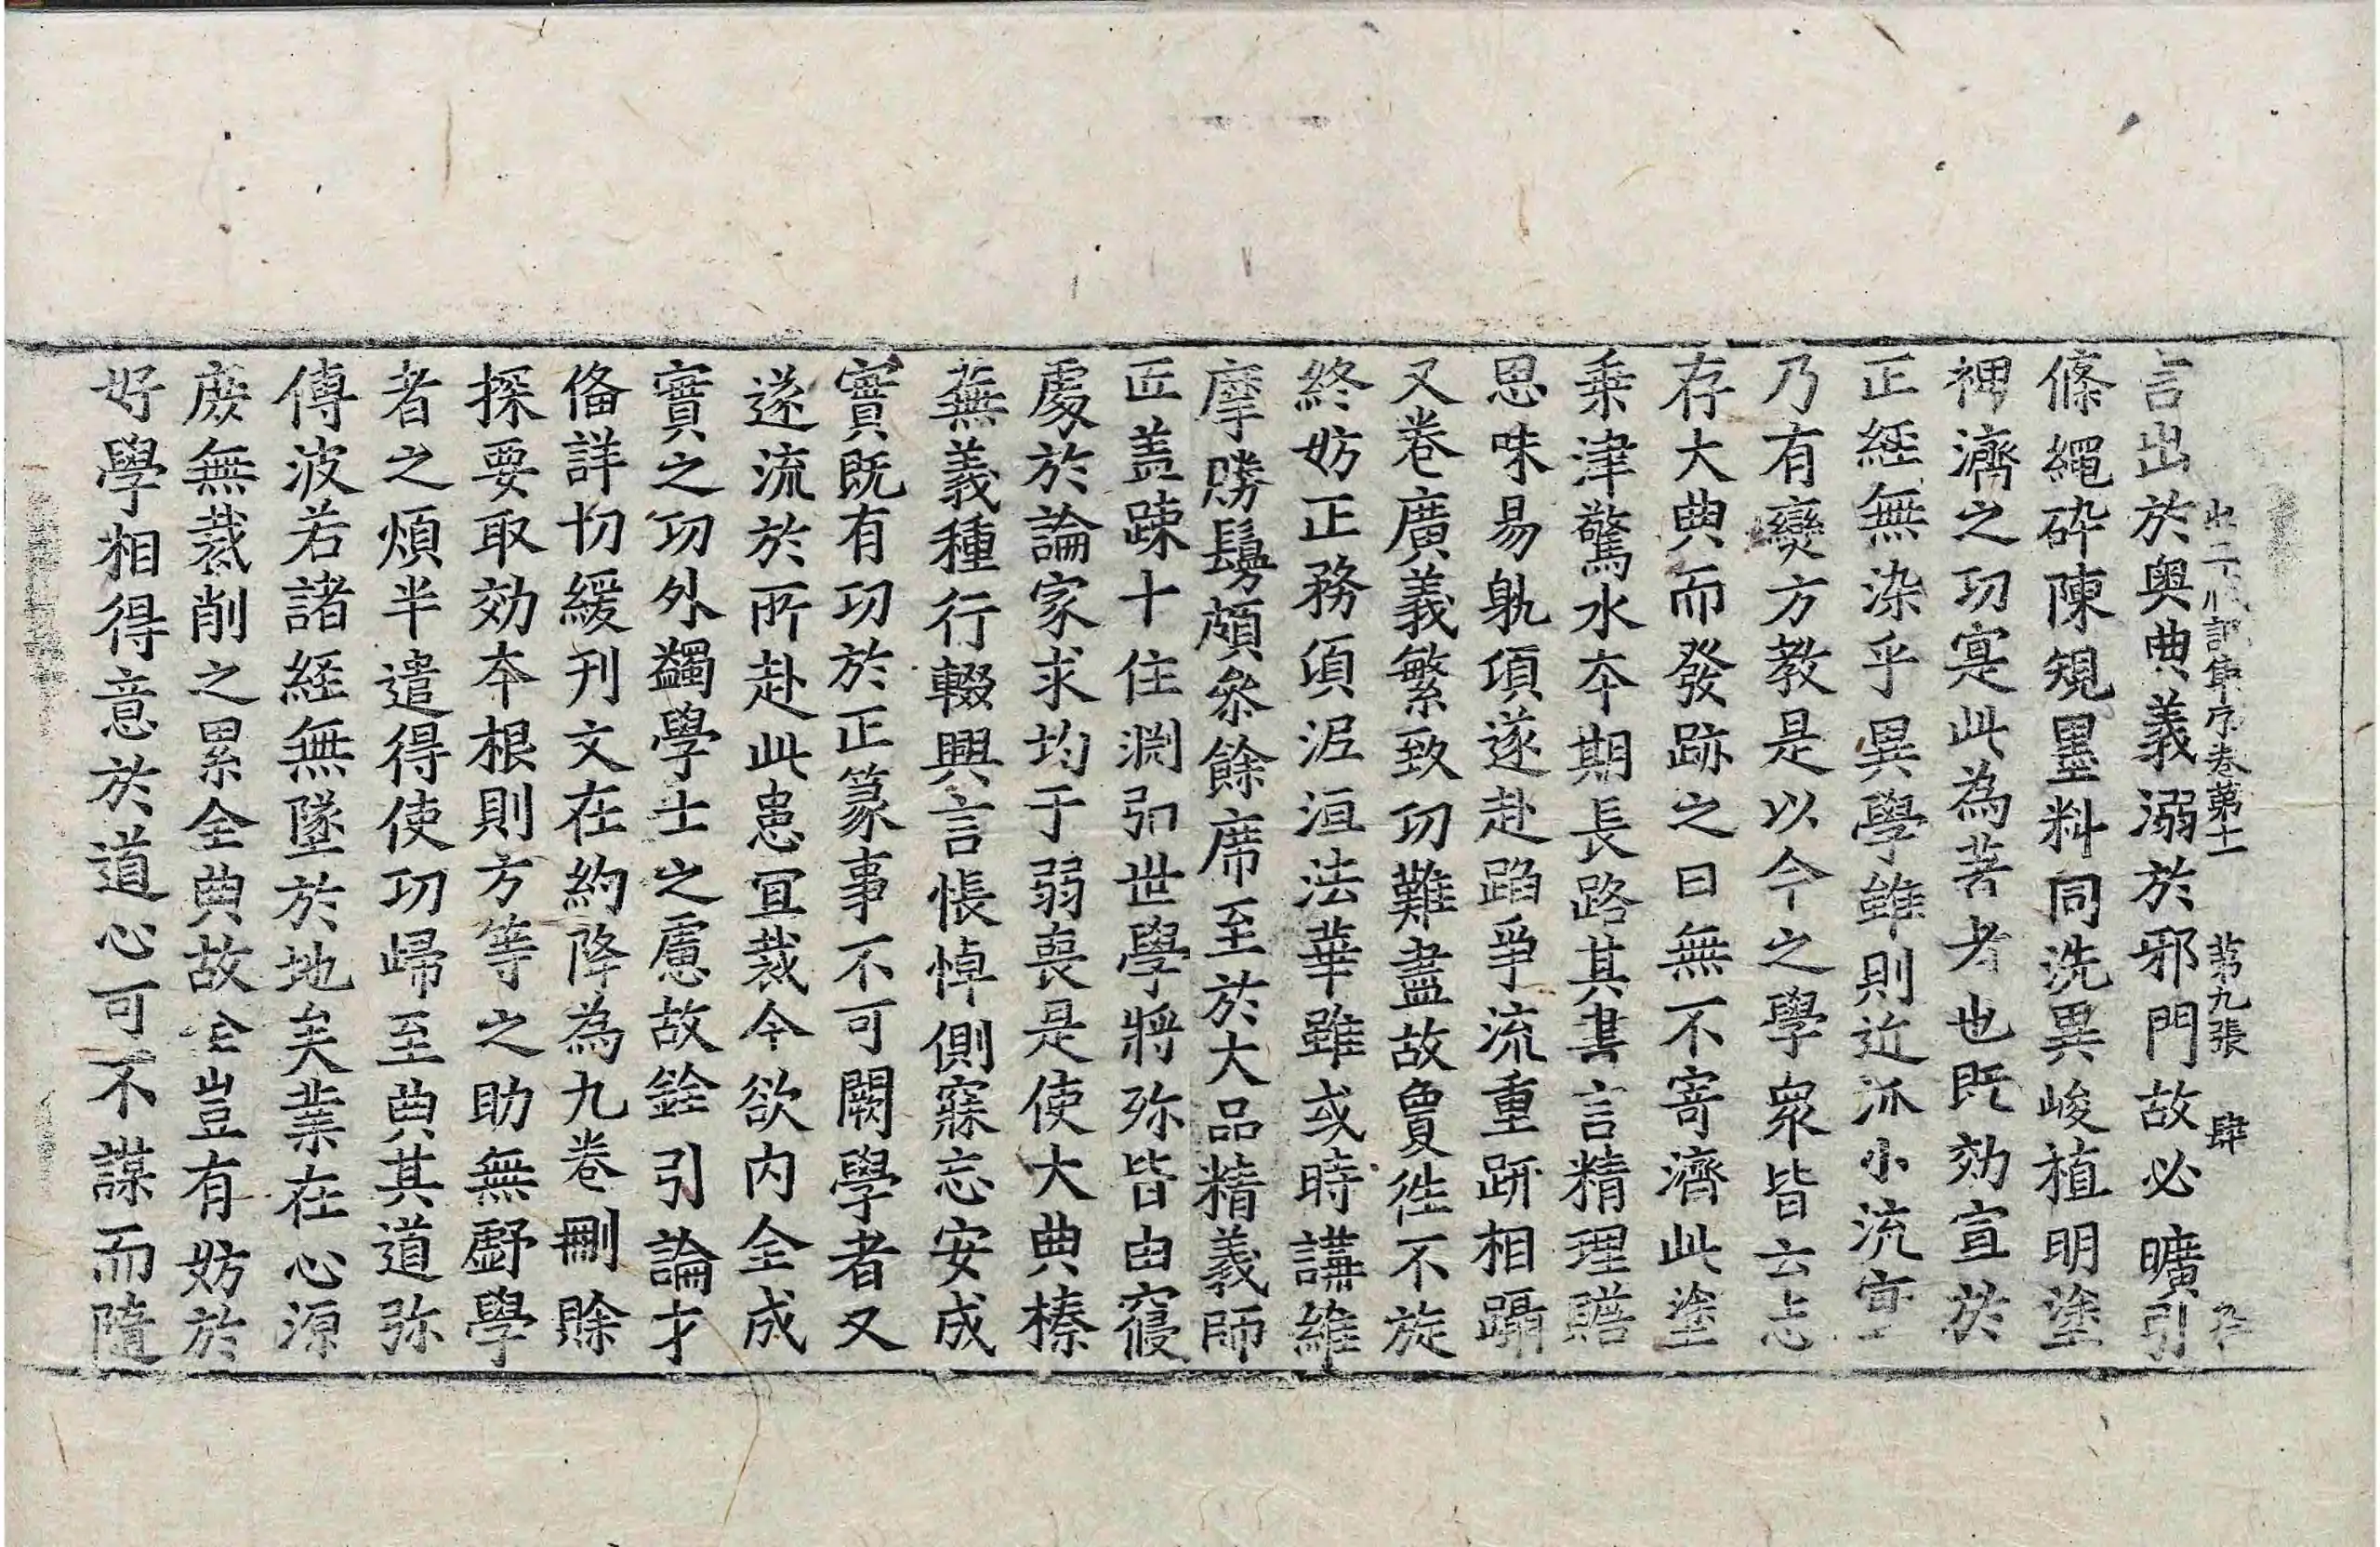 言出於奧典義溺於邪門故必曠引
條繩碎陳規墨料同洗異峻植明塗
裨濟之功寔此為著者也既効宣於
正経無染乎異學雖則近派小流宣
乃有變方教是以今之學衆皆云志
存大典而發跡之日無不寄濟此塗
乗津驚水夲期長路其書言精理贍
思味易躭頃遂赴蹈爭流重趼相躡
又卷廣義繁致功難盡故夐徃不旋
終妨正務頃泥洹法華雖或時講維
摩勝鬘頗叅餘席至於大品精義師
匠盖踈十住淵弘世學將弥皆由寢
處於論家求均于弱喪是使大典榛
蕪義種行輟興言悵悼側寐忘安成
實既有功於正篆事不可闕學者又
遂流於所赴此患冝裁今欲內全成
實之功外蠲學士之慮故銓引論才
俻詳切緩刊文在約降為九卷刪賒
採要取効夲根則方等之助無虧學
者之煩半遣得使功歸至典其道弥
傳波若諸経無墜於地矣業在心源
庶無裁削之累全典故仝豈有妨於
好學相得意於道心可不謀而隨
卷第十一 第九張 肆